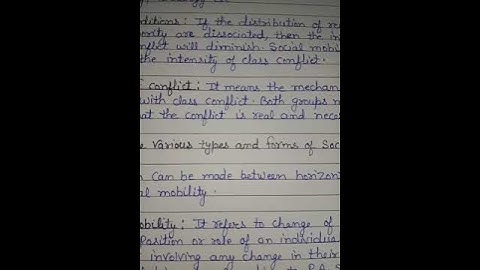 ditions: If the distribution of re
ority are dissociated, then the in
nflict will diminish. Social mobi
the intensity of class conflict.
conflict: It means the mechan
with class conflict. Both groups
at the conflict is real and nece
various types and forms of Soc
can be made between horizon
al mobility.
obility: It refers to change of
Position or role of an individua
involving any change in their